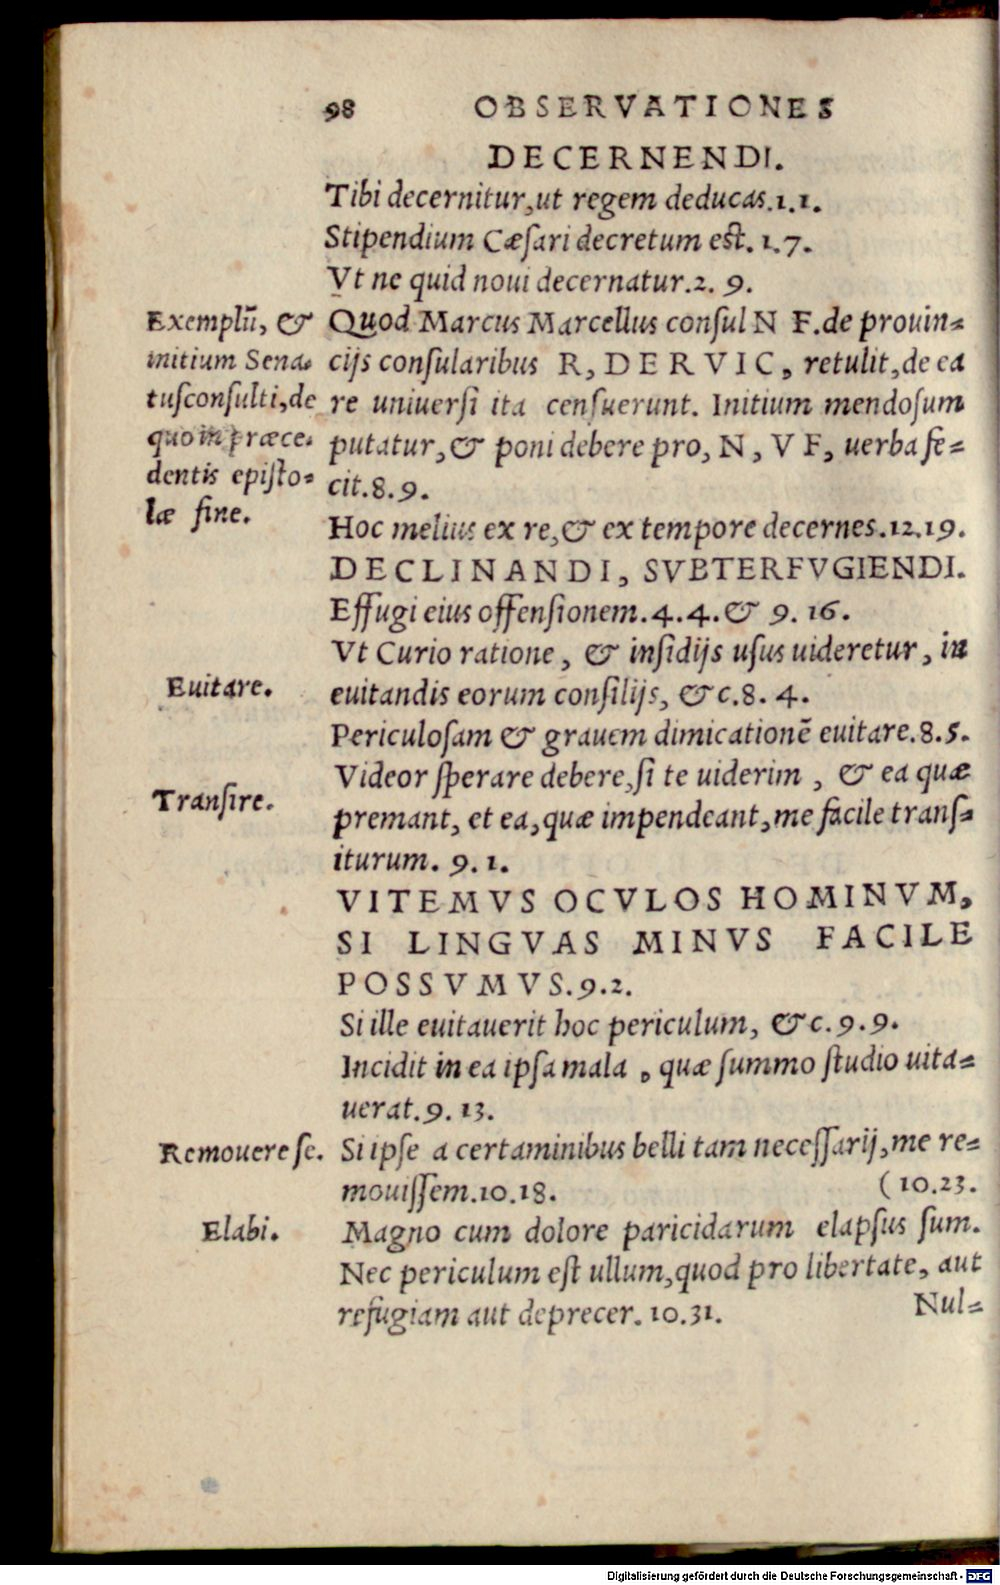 98 OBSERVATIONES
DECERNENDI.
Tibi decernitur,ut regem deducas.1.1.
Stipendium Cæsari decretum est. 1.7.
Vt ne quid noui decernatur.2. 9.
Exemplũ, & Quod Marcus Marcellus consul N F.de prouin=
initium Sena= cijs consularibus R, D E R V I C, retulit,de ea
tusconsulti,de re uniuersi ita censuerunt. Initium mendosum
quo in præce= putatur,& poni debere pro, N, V F, uerba fe=
dentis episto= cit.8.9.
læ fine.
Hoc melius ex re,& ex tempore decernes.12.19.
DECLINANDI, SVBTERFVGIENDI.
Effugi eius offensionem.4.4.& 9. 16.
Vt Curio ratione, & insidijs usus uideretur, in
Euitare. euitandis eorum consilijs, &c.8. 4.
Periculosam & grauem dimicationẽ euitare.8.5.
Videor sperare debere,si te uiderim, & ea quæ
Transire. premant, et ea,quæ impendeant,me facile trans=
iturum. 9.1.
VITEMVS OCVLOS HOMINVM,
SI LINGVAS MINVS FACILE
POSSVMVS.9.2.
Si ille euitauerit hoc periculum, &c.9.9.
Incidit in ea ipsa mala, quæ summo studio uita=
uerat.9. 13.
Remouere se. Si ipse a certaminibus belli tam necessarij,me re=
mouissem.10.18. (10.23.
Elabi. Magno cum dolore paricidarum elapsus sum.
Nec periculum est ullum,quod pro libertate, aut
refugiam aut deprecer. 10.31. Nul=
Digitalisierung gefördert durch die Deutsche Forschungsgemeinschaft - DFG